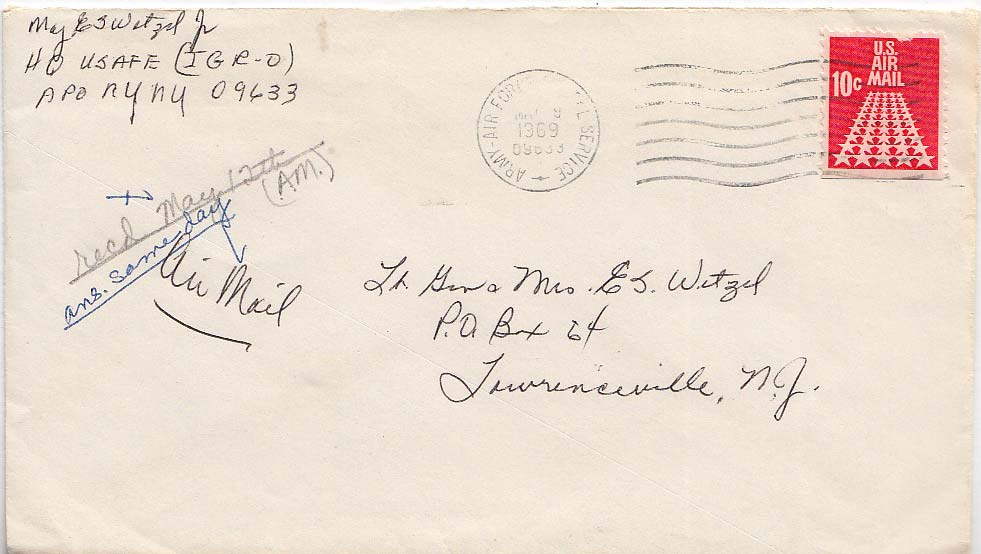 Maj E S Wetzel Jr
HQ USAFE (IGR-O)
APO NY NY 09633
ARMY-AIR FORCE SERVICE
1969
09633
U.S.
AIR
MAIL
10c
recd May 12th
(A.M.)
ans. same day
Air Mail
Lt. Gen & Mrs. E S. Wetzel
P.O Box 64
Lawrenceville, N.J.